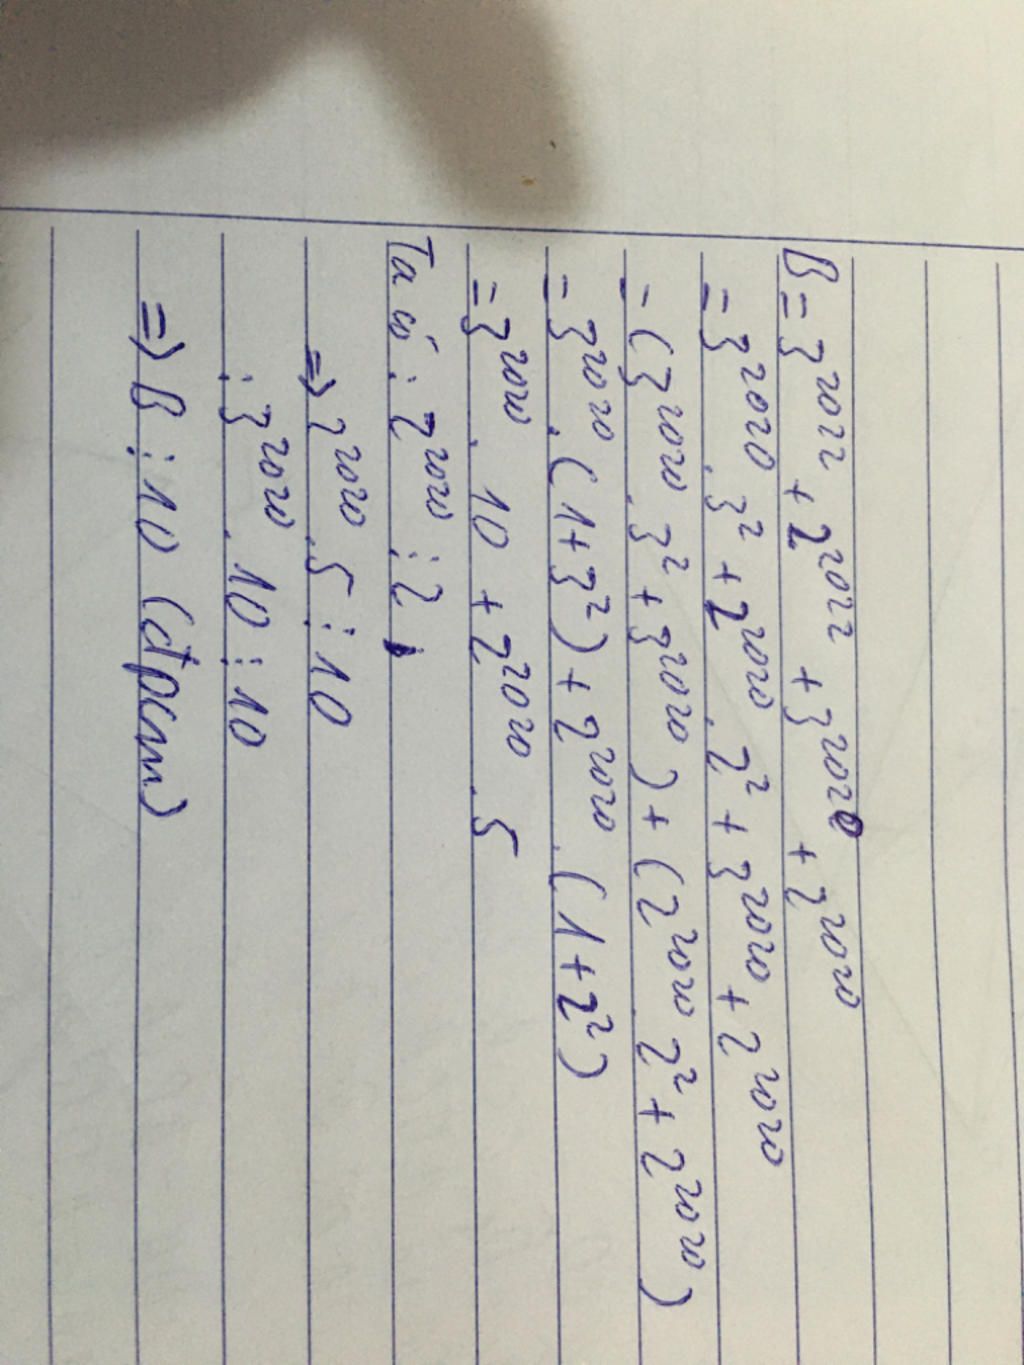 B = 3²⁰²² + 2²⁰²² + 3²⁰²⁰ + 2²⁰²⁰
= 3²⁰²⁰ . 3² + 2²⁰²⁰ . 2² + 3²⁰²⁰ + 2²⁰²⁰
= (3²⁰²⁰ . 3² + 3²⁰²⁰) + (2²⁰²⁰ . 2² + 2²⁰²⁰)
= 3²⁰²⁰ . (1+3²) + 2²⁰²⁰ . (1+2²)
= 3²⁰²⁰ . 10 + 2²⁰²⁰ . 5
Ta có : 2²⁰²⁰ ⋮ 2 ;
=> 2²⁰²⁰ . 5 ⋮ 10
: 3²⁰²⁰ . 10 ⋮ 10
=> B ⋮ 10 (đpcm)